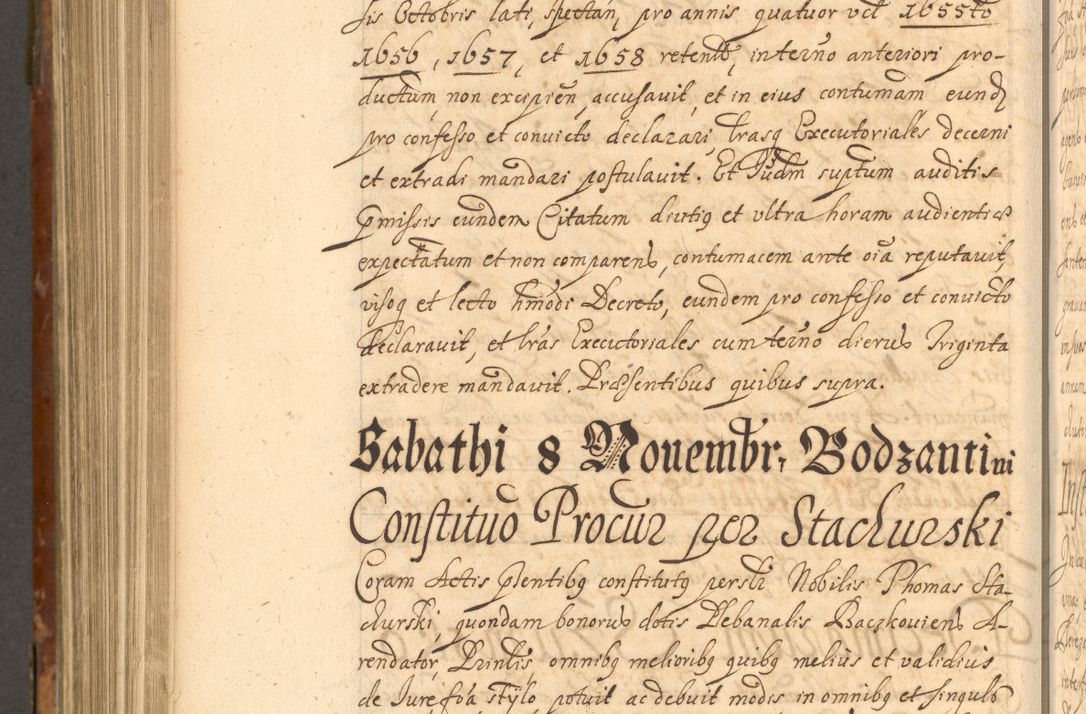 sis Octobris lati, spectan, pro annis quatuor vct 1655to
1656, 1657, et 1658 retent, interno anteriori pro-
ductam, non excipien, accusavit, et in eius contumam eund
pro confesso et convicto declarari, lrasq Executoriales decerni
et extradi mandari postulavit. Et Judm suptum auditis
pmissis eundem Citatum diutiq et ultra horam audientiae
expectatum et non comparens, contumacem ante oia reputavit,
visoq et lecto hmodi Decreto, eundem pro confesso et convicto
declaravit, et lras Executoriales cum termo dierus Triginta
extradere mandavit. Praesentibus quibus supra.
Sabathi 8 Nouembr. Bodzantini
Constituo Procur per Stachurski
Coram Actis pntibq constitutq persli Nobilis Thomas Sta-
churski, quondam bonorus dotis Plebanalis Raczkoviens A-
rendator, Prinlis, omnibq melioribq quibq melius et validius
de Jure foa stylo potuit ac debuit modis in omnibq et singulo